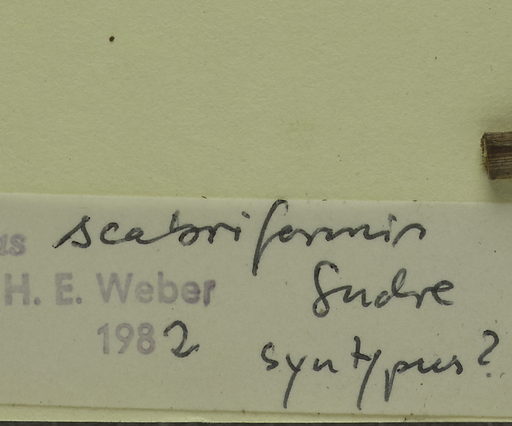 us scabriformis
H. E. Weber Sudre
1982
syntypus?